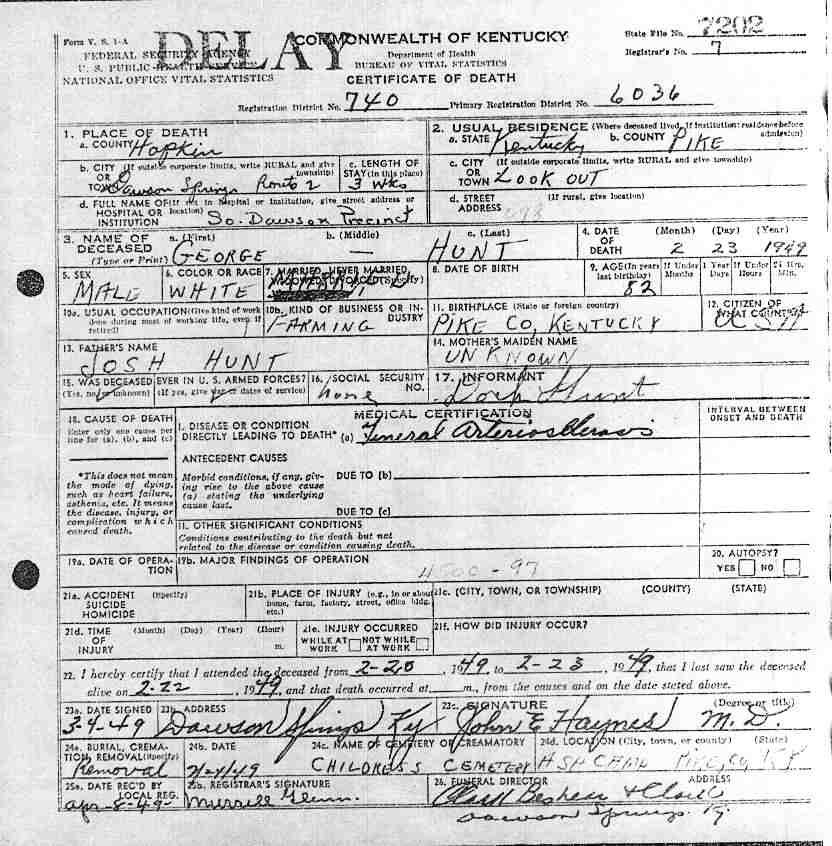 Form V. S. 1-A
FEDERAL SECURITY AGENCY
U. S. PUBLIC HEALTH
NATIONAL OFFICE VITAL STATISTICS
DELAY
COMMONWEALTH OF KENTUCKY
Department of Health
BUREAU OF VITAL STATISTICS
CERTIFICATE OF DEATH
State File No. 7202
Registrar's No. 7
Registration District No. 740 Primary Registration District No. 6036
1. PLACE OF DEATH
a. COUNTY Hopkin
b. CITY (If outside corporate limits, write RURAL and give township)
OR
TOWN Dawson Springs Route 2
c. LENGTH OF STAY (in this place)
3 Wks
d. FULL NAME OF (If not in hospital or institution, give street address or location)
HOSPITAL OR
INSTITUTION So. Dawson Precinct
2. USUAL RESIDENCE (Where deceased lived. If institution: residence before admission)
a. STATE Kentucky b. COUNTY PIKE
c. CITY (If outside corporate limits, write RURAL and give township)
OR
TOWN LOOK OUT
d. STREET ADDRESS (If rural, give location)
3. NAME OF DECEASED
(Type or Print)
a. (First) GEORGE
b. (Middle) —
c. (Last) HUNT
4. DATE OF DEATH
(Month) (Day) (Year)
2 23 1949
5. SEX
MALE
6. COLOR OR RACE
WHITE
7. MARRIED, NEVER MARRIED, WIDOWED, DIVORCED (Specify)
8. DATE OF BIRTH
9. AGE (In years last birthday) 82
If Under 1 Year
Months Days
If Under 24 Hrs.
Hours Min.
10a. USUAL OCCUPATION (Give kind of work done during most of working life, even if retired)
10b. KIND OF BUSINESS OR INDUSTRY
FARMING
11. BIRTHPLACE (State or foreign country)
PIKE CO, KENTUCKY
12. CITIZEN OF WHAT COUNTRY?
USA
13. FATHER'S NAME
JOSH HUNT
14. MOTHER'S MAIDEN NAME
UNKNOWN
15. WAS DECEASED EVER IN U. S. ARMED FORCES?
(Yes, no, or unknown) (If yes, give war or dates of service)
16. SOCIAL SECURITY NO.
None
17. INFORMANT
Hunt
18. CAUSE OF DEATH
Enter only one cause per line for (a), (b), and (c)
MEDICAL CERTIFICATION
INTERVAL BETWEEN ONSET AND DEATH
I. DISEASE OR CONDITION
DIRECTLY LEADING TO DEATH* (a) General Arteriosclerosis
*This does not mean the mode of dying, such as heart failure, asthenia, etc. It means the disease, injury, or complication which caused death.
ANTECEDENT CAUSES
Morbid conditions, if any, giving rise to the above cause (a) stating the underlying cause last.
DUE TO (b)
DUE TO (c)
II. OTHER SIGNIFICANT CONDITIONS
Conditions contributing to the death but not related to the disease or condition causing death.
19a. DATE OF OPERATION
19b. MAJOR FINDINGS OF OPERATION
4500-97
20. AUTOPSY?
YES NO
21a. ACCIDENT
SUICIDE
HOMICIDE
(Specify)
21b. PLACE OF INJURY (e.g., in or about home, farm, factory, street, office bldg. etc.)
21c. (CITY, TOWN, OR TOWNSHIP) (COUNTY) (STATE)
21d. TIME OF INJURY
(Month) (Day) (Year) (Hour)
m.
21e. INJURY OCCURRED
WHILE AT WORK NOT WHILE AT WORK
21f. HOW DID INJURY OCCUR?
22. I hereby certify that I attended the deceased from 2-20, 1949, to 2-23, 1949, that I last saw the deceased
alive on 2-22, 1949, and that death occurred at m., from the causes and on the date stated above.
23a. DATE SIGNED
3-4-49
23b. ADDRESS
Dawson Springs Ky
23c. SIGNATURE (Degree or title)
John E Haynes M.D.
24a. BURIAL, CREMATION, REMOVAL (Specify)
Removal
24b. DATE
24c. NAME OF CEMETERY OR CREMATORY
CHILDRESS CEMETERY
24d. LOCATION (City, town, or county) (State)
CAMP PIKE, CO, KY
25a. DATE REC'D BY LOCAL REG.
Apr-8-49-
25b. REGISTRAR'S SIGNATURE
Merrill Glenn.
26. FUNERAL DIRECTOR ADDRESS
Beshear &
Dawson Springs. Ky.